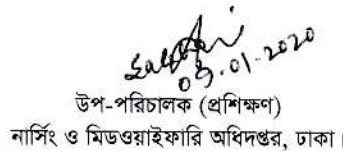 ০৭.০১.২০২০
উপ-পরিচালক (প্রশিক্ষণ)
নার্সিং ও মিডওয়াইফারি অধিদপ্তর, ঢাকা।